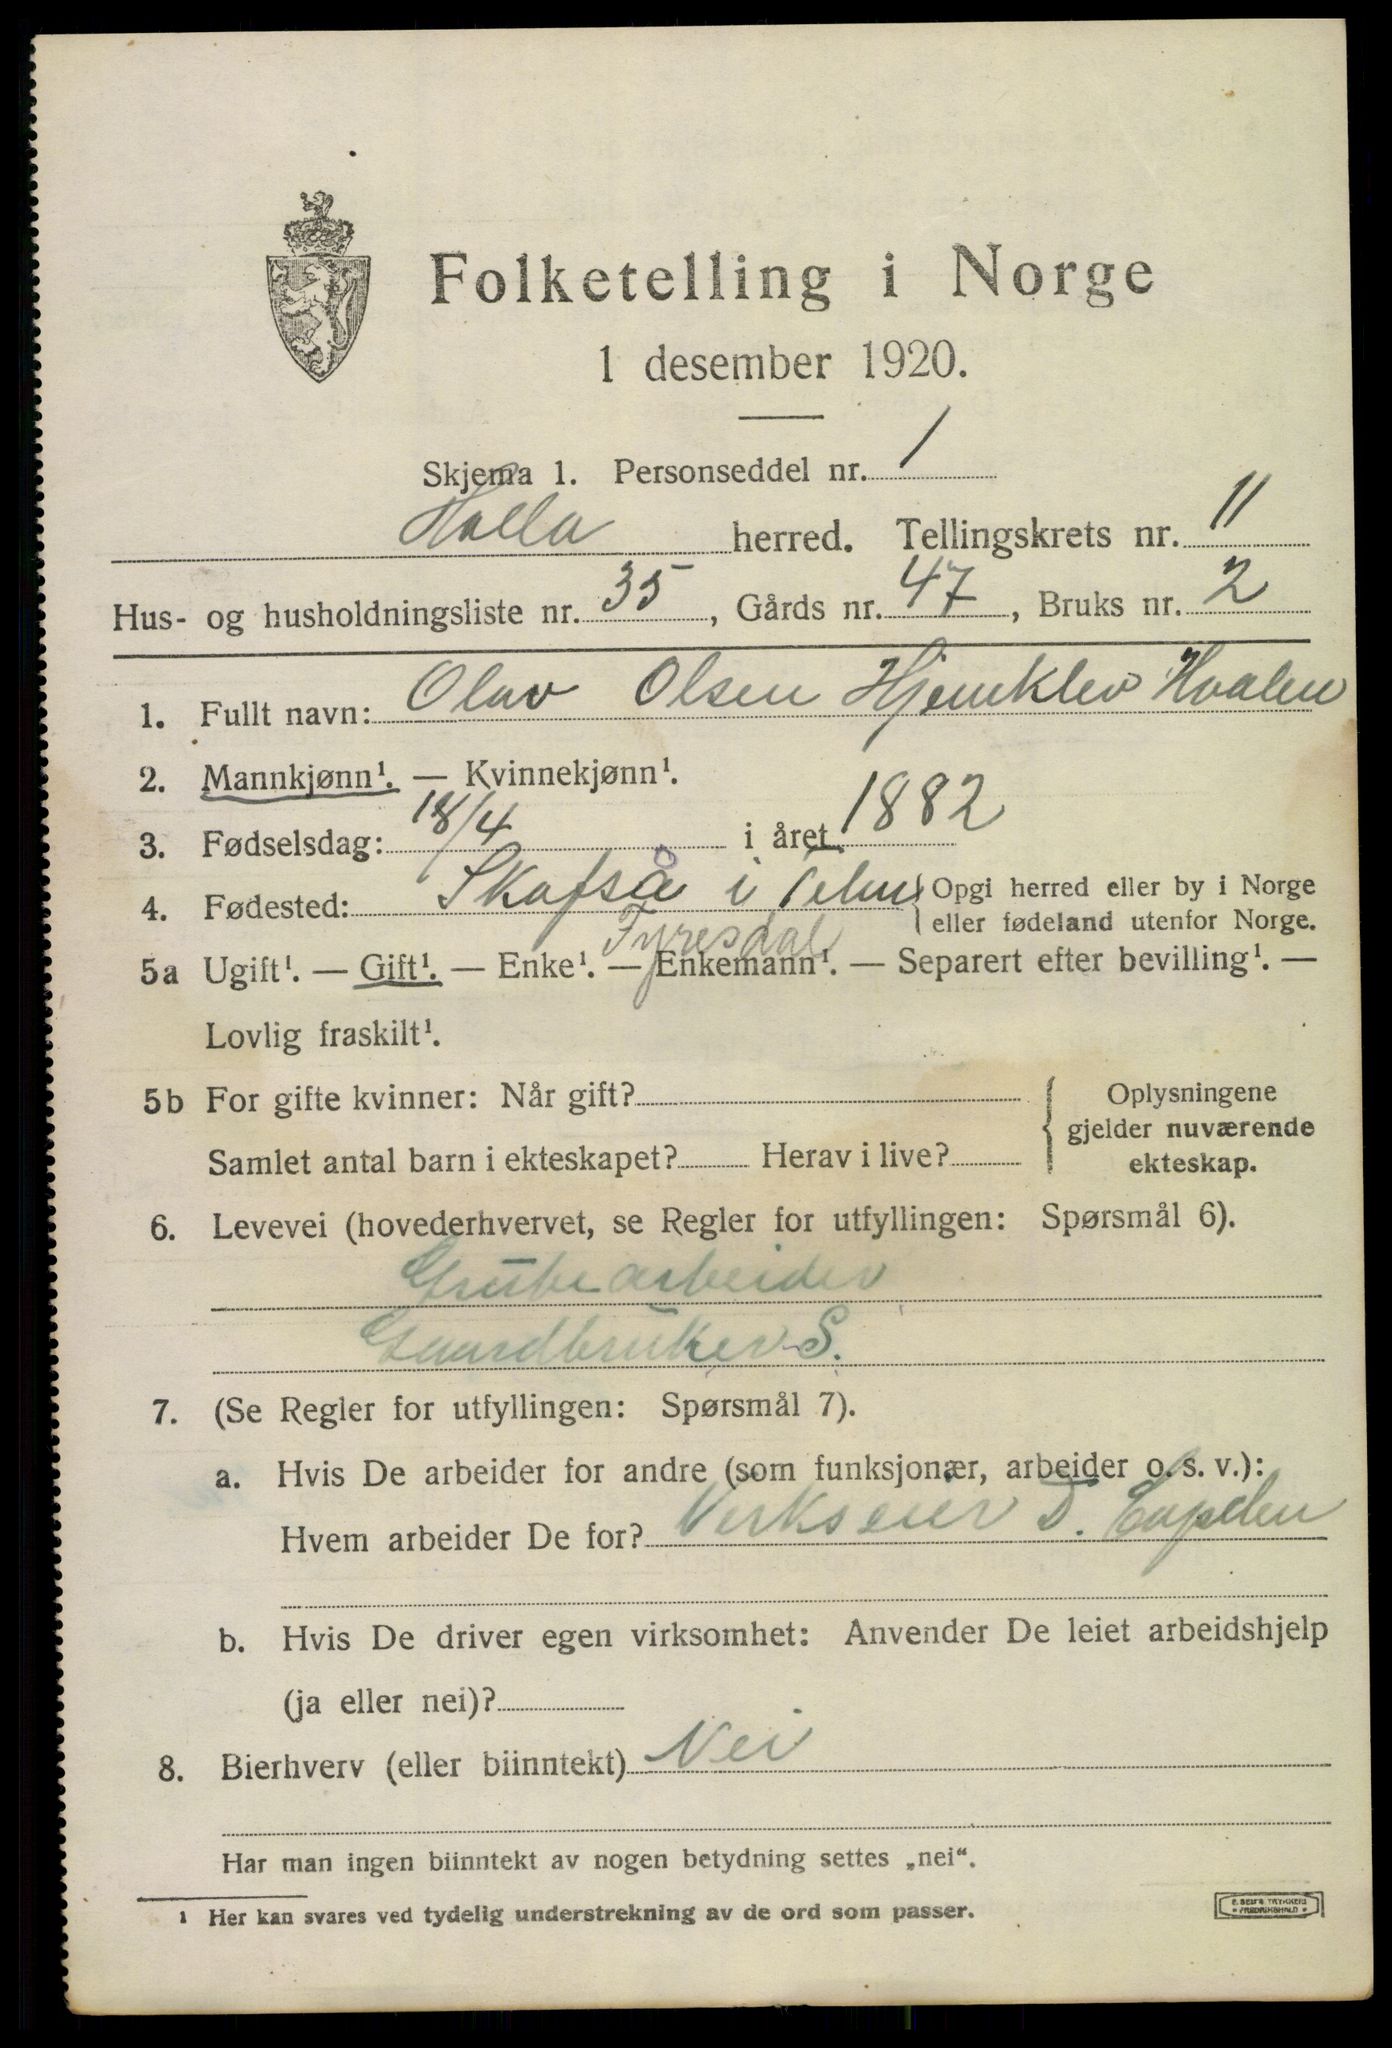 Folketelling i Norge
1 desember 1920.
Skjema 1. Personseddel nr. 1
Holla herred. Tellingskrets nr. 11
Hus- og husholdningsliste nr. 35, Gårds nr. 47, Bruks nr. 2
1. Fullt navn: Olav Olsen Hjemklev Hvalen
2. Mannkjønn¹. — Kvinnekjønn¹.
3. Fødselsdag: 18/4 i året 1882
4. Fødested: Skafså i Telm { Opgi herred eller by i Norge
eller fødeland utenfor Norge.
Tyresdal
5a Ugift¹. — Gift¹. — Enke¹. — Enkemann¹. — Separert efter bevilling¹. —
Lovlig fraskilt¹.
5b For gifte kvinner: Når gift?
Samlet antal barn i ekteskapet? Herav i live?
Oplysningene
gjelder nuværende
ekteskap.
6. Levevei (hovederhvervet, se Regler for utfyllingen: Spørsmål 6).
Grubearbeider
Gaardbruker S.
7. (Se Regler for utfyllingen: Spørsmål 7).
a. Hvis De arbeider for andre (som funksjonær, arbeider o. s. v.):
Hvem arbeider De for? Verkseier D. Cappelen
b. Hvis De driver egen virksomhet: Anvender De leiet arbeidshjelp
(ja eller nei)?
8. Bierhverv (eller biinntekt) Nei
Har man ingen biinntekt av nogen betydning settes „nei“.
¹ Her kan svares ved tydelig understrekning av de ord som passer.
E. SEM'S TRYKKERI
FREDRIKSHALD